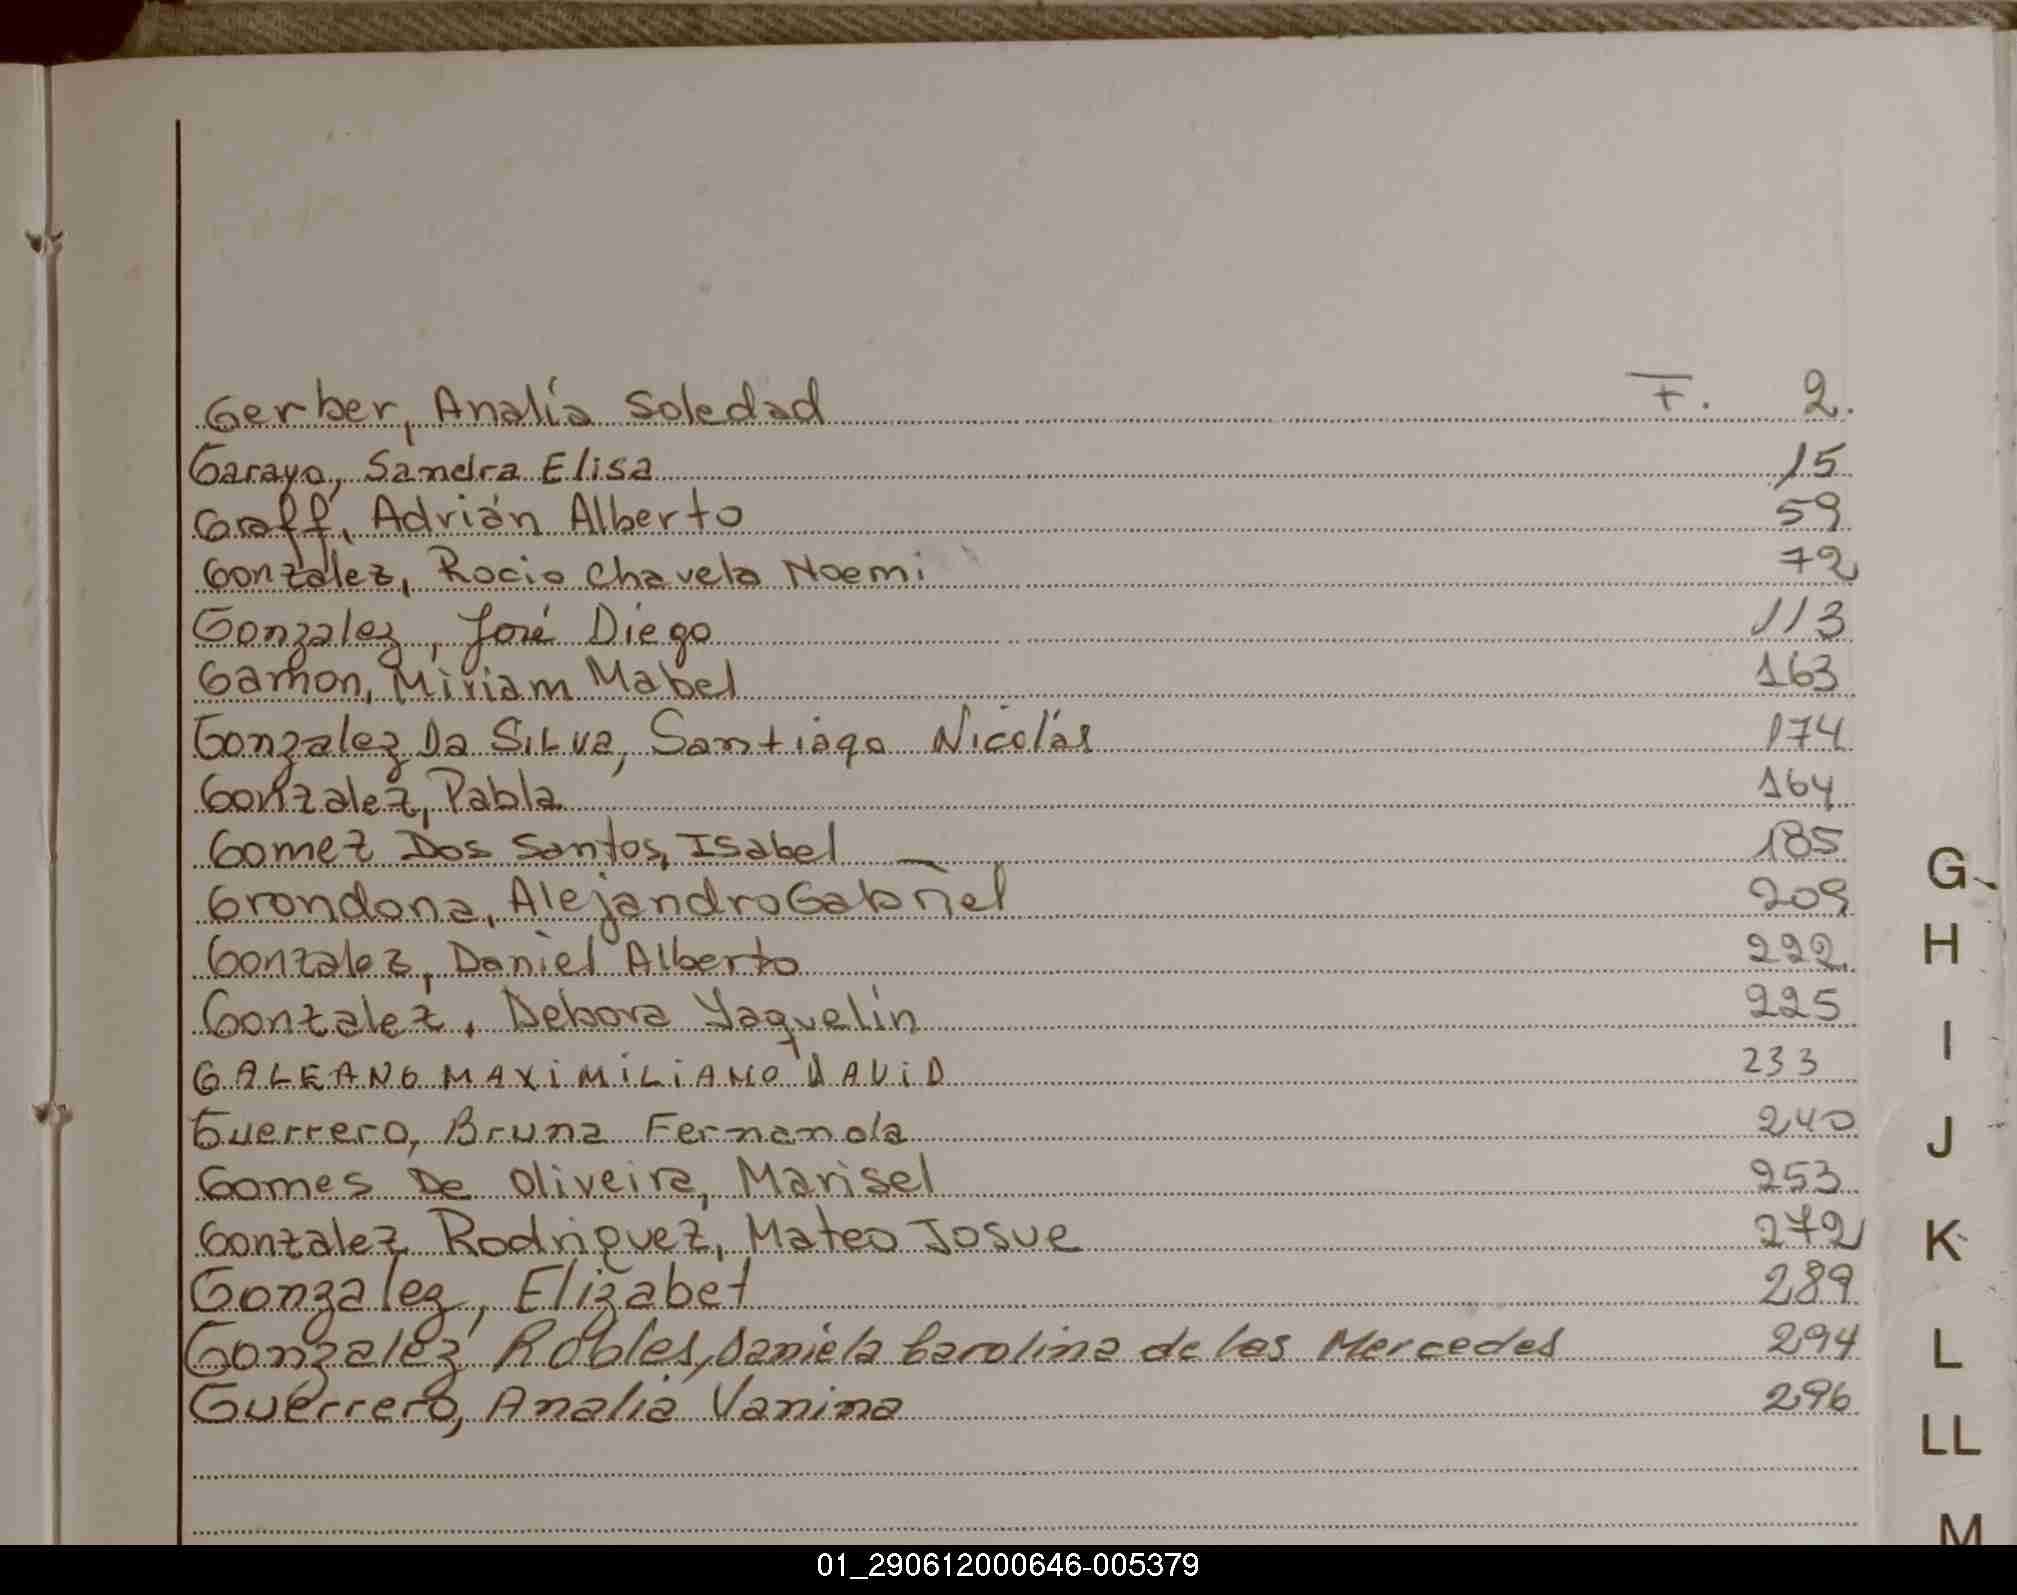 Gerber, Analía Soledad F. 2.
Garayo, Sandra Elisa 15
Graff, Adrián Alberto 59
Gonzalez, Rocio Chavela Noemi 72
Gonzalez, José Diego 113
Gamon, Miriam Mabel 163
Gonzalez Da SiLva, Santiago Nicolás 174
Gonzalez, Pabla 164
Gomez Dos Santos, Isabel 185
Grondona, Alejandro Gabriel 209
Gonzalez, Daniel Alberto 222
Gonzalez, Debora Yaquelin 225
GALEANO MAXiMiLiANO DAViD 233
Guerrero, Bruna Fernanda 240
Gomes De Oliveira, Marisel 253
Gonzalez Rodriguez, Mateo Josue 272
Gonzalez, Elizabet 289
Gonzalez Robles, Daniela Carolina de las Mercedes 294
Guerrero, Analia Vanina 296
G
H
I
J
K
L
LL
M
01_290612000646-005379